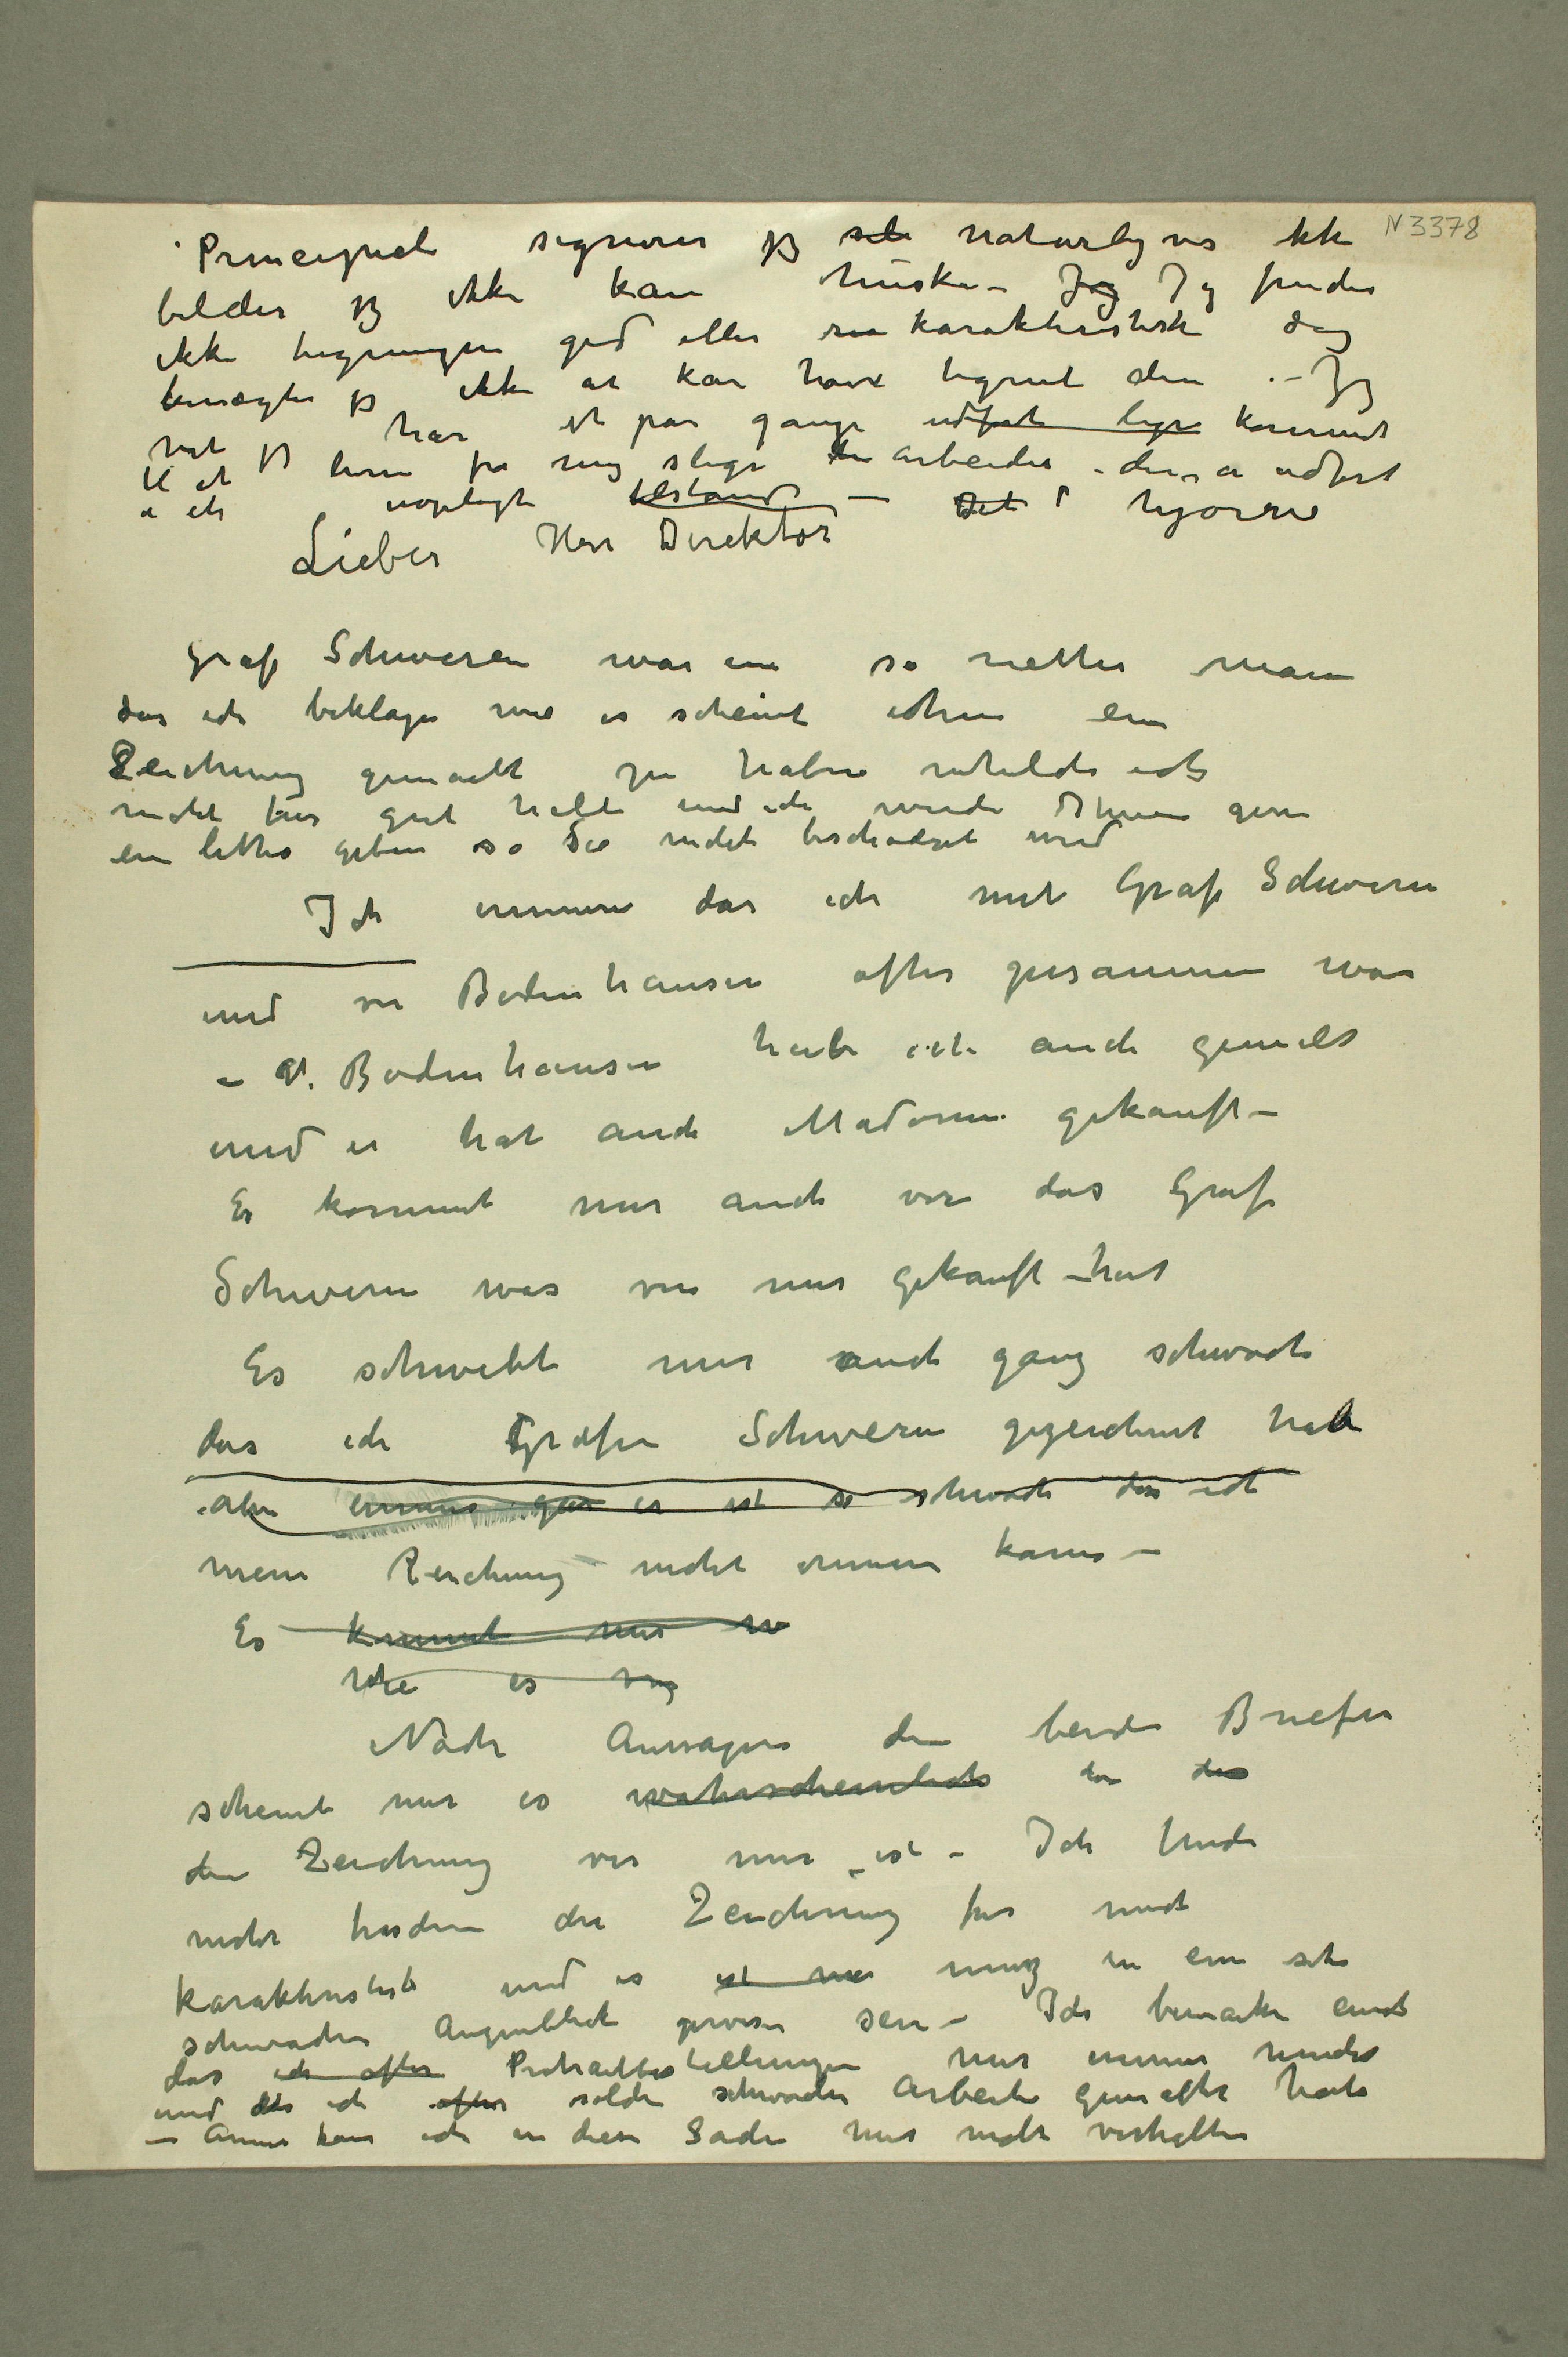 N 3378
Principielt signerer jeg selv naturligvis ikke
bilder jeg ikke kan huske – Jeg Jeg finder
ikke tegningen god eller saa karakteristisk dog
benægter jeg ikke at kan have tegnet den . – Jeg
vet jeg har et par gange udført lign kommet
til at levere fra mig slige arbeider – der er udført
i et uoplagt tilstand – Det hjørne
Lieber Herr Direktor
Graf Schweren war ein so netter mann
das ich beklage wie es scheint ihm ein
Zeichnung gemacht zu haben welche ich
nicht für gut halte und ich werde Ihnen gern
ein lithos geben so Sie nicht beschädigt wird
Ich erinnere das ich mit Graf Schwerin
und von Bodenhausen öfter zusammen war
– V. Bodenhausen habe ich auch gemalt
und er hat auch Madonna gekauft –
Es kommt mir auch vor das Graf
Schwerin was von mir gekauft hat
Es schwebt mir auch ganz schwach
das ich Gräfin Schwerin gezeichnet habe
aber es ist so schwach das ich
meine Zeichnung nicht erinnern kann –
Es kommt mir
Wie es
Nach Aussagen den beiden Briefen
scheint mir es wahrscheinlich das die
die Zeichnung von mir ist – Ich finde
nicht die Zeichnung für mich
karakteristisch und es ist mir muss in ein sehr
schwachen Augenblick gewesen sein – Ich bemerke auch
das ich öfter Portraitbestellungen mir immer
und das ich öfters solche schwache Arbeite gemacht habe
– Anners kann ich in diese Sache mir nicht verhalten